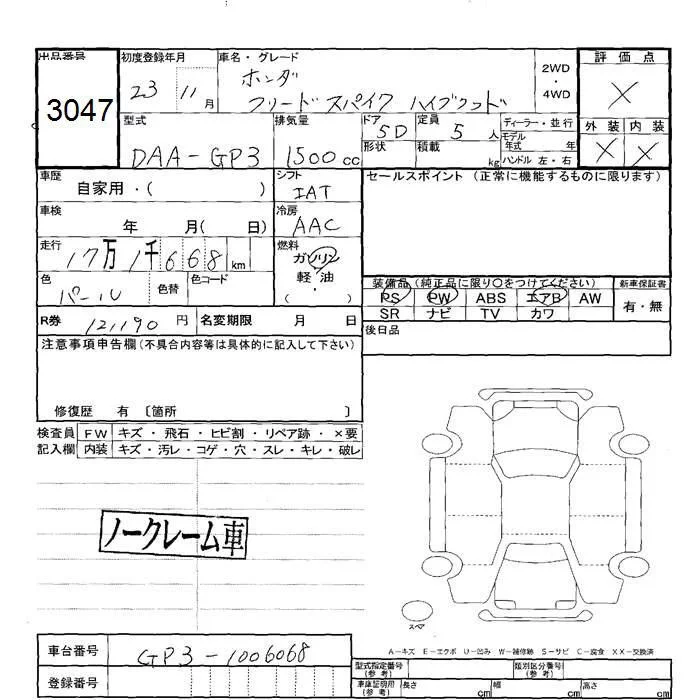 出品番号 初度登録年月 車名・グレード 評価点
3047 23 11月 ホンダ 2WD ×
フリード スパイク ハイブリッド ・4WD
型式 排気量 ドア 定員 ディーラー・並行 外装 内装
DAA-GP3 1500cc 5D 5人 モデル年式 年 × ×
形状 積載 kg ハンドル 左・右
車歴 シフト セールスポイント (正常に機能するものに限ります)
自家用・( ) IAT
車検 冷房
年 月( 日) AAC
走行 燃料
17万1千668km ガソリン
色 色替 色コード 軽・油
パール ( ・ )
装備品(純正品に限り○をつけてください) 新車保証書
PS PW ABS エアB AW 有・無
SR ナビ TV カワ
R券 121190円 名変期限 月 日
後日品
注意事項申告欄(不具合内容等は具体的に記入して下さい)
修復歴 有 〔箇所 〕
検査員 FW キズ・飛石・ヒビ割・リペア跡・×要
記入欄 内装 キズ・汚レ・コゲ・穴・スレ・キレ・破レ
ノークレーム車
スペア
A-キズ E-エクボ U-凹み W-補修跡 S-サビ C-腐食 XX-交換済
車台番号 GP3-1006068
型式指定番号(参考) 類別区分番号(参考)
登録番号
車庫証明用(参考) 長さ cm 幅 cm 高さ cm